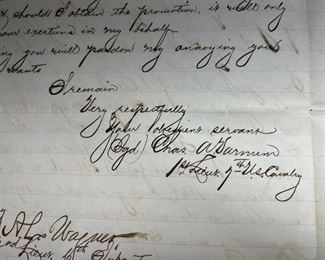 & should I obtain the promotion, it will only
our exertion in my behalf.
ing you will pardon my annoying you
wants
I remain
Very respectfully
Your obedient servant
(Sgd) Chas A Varnum
1st Lieut. 7th U.S. Cavalry
Wagner
Lieut.